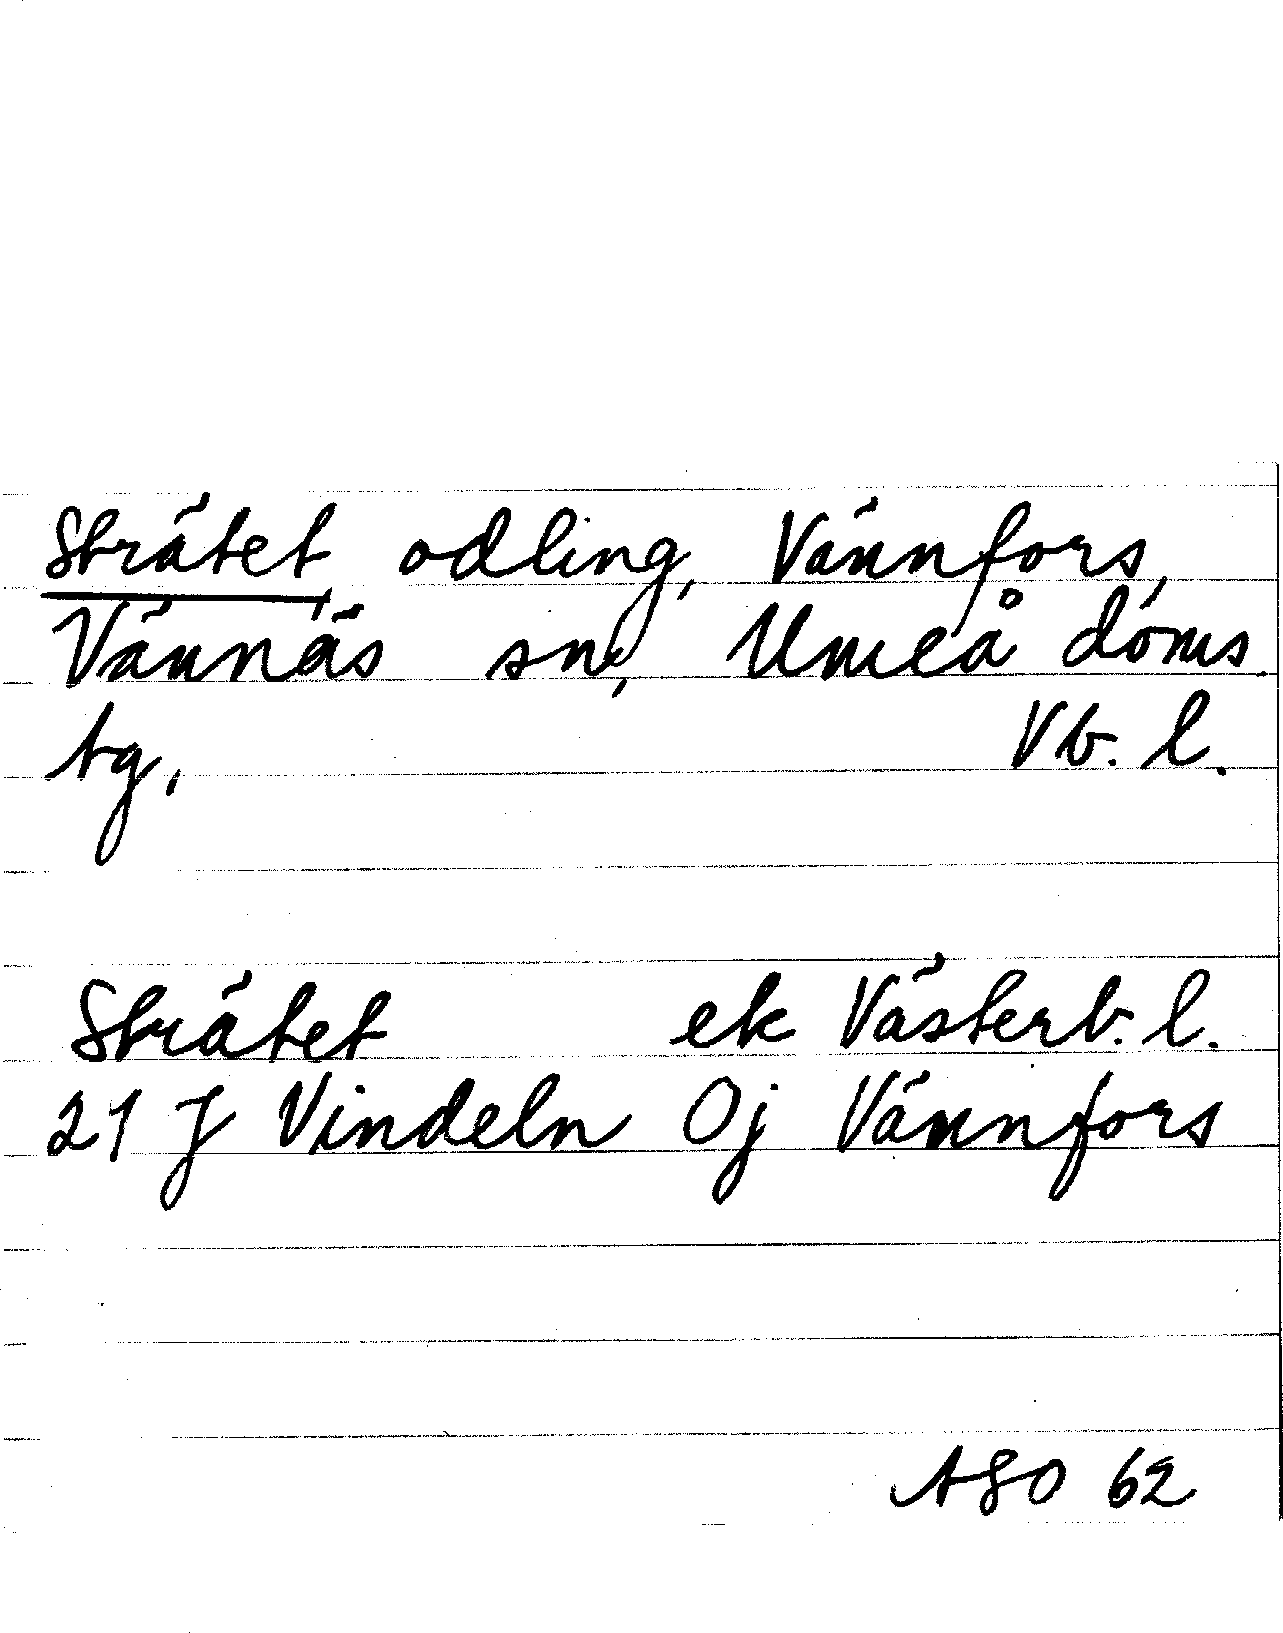 Strätet odling, Vännfors,
Vännäs sn, Umeå doms.
tg, Vb. l.
Strätet ek Västerb. l.
21 J Vindeln 0j Vännfors
ASO 62